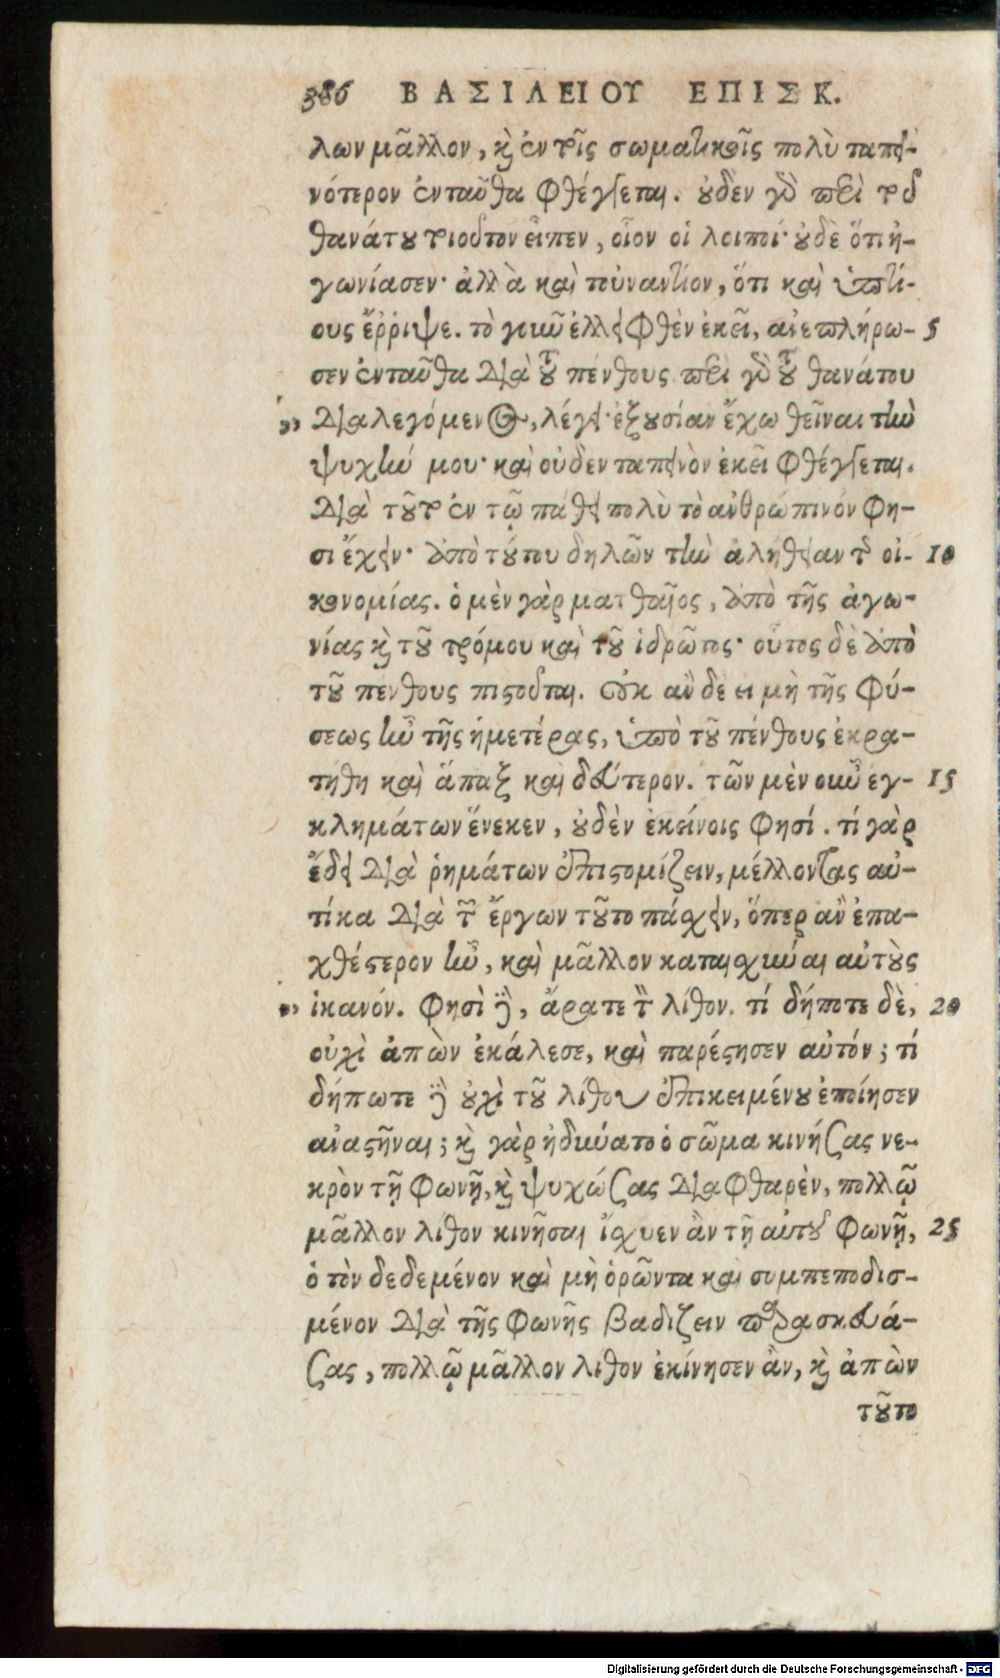 386 ΒΑΣΙΛΕΙΟΥ ΕΠΙΣΚ.
λων μᾶλλον, κὶ ἐν τοῖς σωματικοῖς πολὺ ταπει-
νότερον ἐνταῦθα φθέγγεται. οὐδὲν γὸ περὶ τοῦ
θανάτου τοιοῦτον εἶπεν, οἷον οἱ λοιποί· οὐδὲ ὅτι ἠ-
γωνίασεν· ἀλλὰ καὶ τοὐναντίον, ὅτι καὶ ὑπτί-
ους ἔῤῥιψε. τὸ γοῦν ἐλλειφθὲν ἐκεῖ, ἀνεπλήρω- 5
σεν ἐνταῦθα διὰ τοῦ πένθους περὶ γὸ τοῦ θανάτου
„ διαλεγόμενος, λέγει· ἐξουσίαν ἔχω θεῖναι τὴν
ψυχήν μου· καὶ οὐδὲν ταπεινὸν ἐκεῖ φθέγγεται.
διὰ τοῦτο ἐν τῷ πάθει πολὺ τὸ ἀνθρώπινόν φη-
σι ἔχειν· ἀπὸ τούτου δηλῶν τὴν ἀλήθειαν τῆς οἰ- 10
κονομίας. ὁ μὲν γὰρ ματθαῖος, ἀπὸ τῆς ἀγω-
νίας κὶ τοῦ τρόμου καὶ τοῦ ἱδρῶτος· οὗτος δὲ ἀπὸ
τοῦ πένθους πιστοῦται. Οὐκ ἂν δὲ ει μὴ τῆς φύ-
σεως ἦν τῆς ἡμετέρας, ὑπὸ τοῦ πένθους ἐκρα-
τήθη καὶ ἅπαξ καὶ δεύτερον. τῶν μὲν οὖν εγ- 15
κλημάτων ἕνεκεν, οὐδὲν ἐκείνοις φησί. τί γὰρ
ἔδει διὰ ῥημάτων ἐπιστομίζειν, μέλλοντας αὐ-
τίκα διὰ τῶν ἔργων τοῦτο πάσχειν, ὅπερ ἂν ἐπα-
χθέστερον ἦν, καὶ μᾶλλον καταισχῦναι αὐτοὺς
„ ἱκανόν. φησὶ γὸ, ἄρατε τὸν λίθον. τί δήποτε δὲ, 20
οὐχὶ ἀπὼν ἐκάλεσε, καὶ παρέστησεν αὐτόν; τί
δήπωτε γὸ οὐχὶ τοῦ λίθου ἐπικειμένου ἐποίησεν
ἀναστῆναι; κὶ γὰρ ἠδύνατο ὁ σῶμα κινήσας νε-
κρὸν τῇ φωνῇ, κὶ ψυχώσας διαφθαρὲν, πολλῷ
μᾶλλον λίθον κινῆσαι ἴσχυεν ἂν τῇ αὐτοῦ φωνῇ, 25
ὁ τὸν δεδεμένον καὶ μὴ ὁρῶντα καὶ συμπεποδισ-
μένον διὰ τῆς φωνῆς βαδίζειν παρασκευά-
σας, πολλῷ μᾶλλον λίθον ἐκίνησεν ἂν, κὶ ἀπὼν
τοῦτο
Digitalisierung gefördert durch die Deutsche Forschungsgemeinschaft - DFG